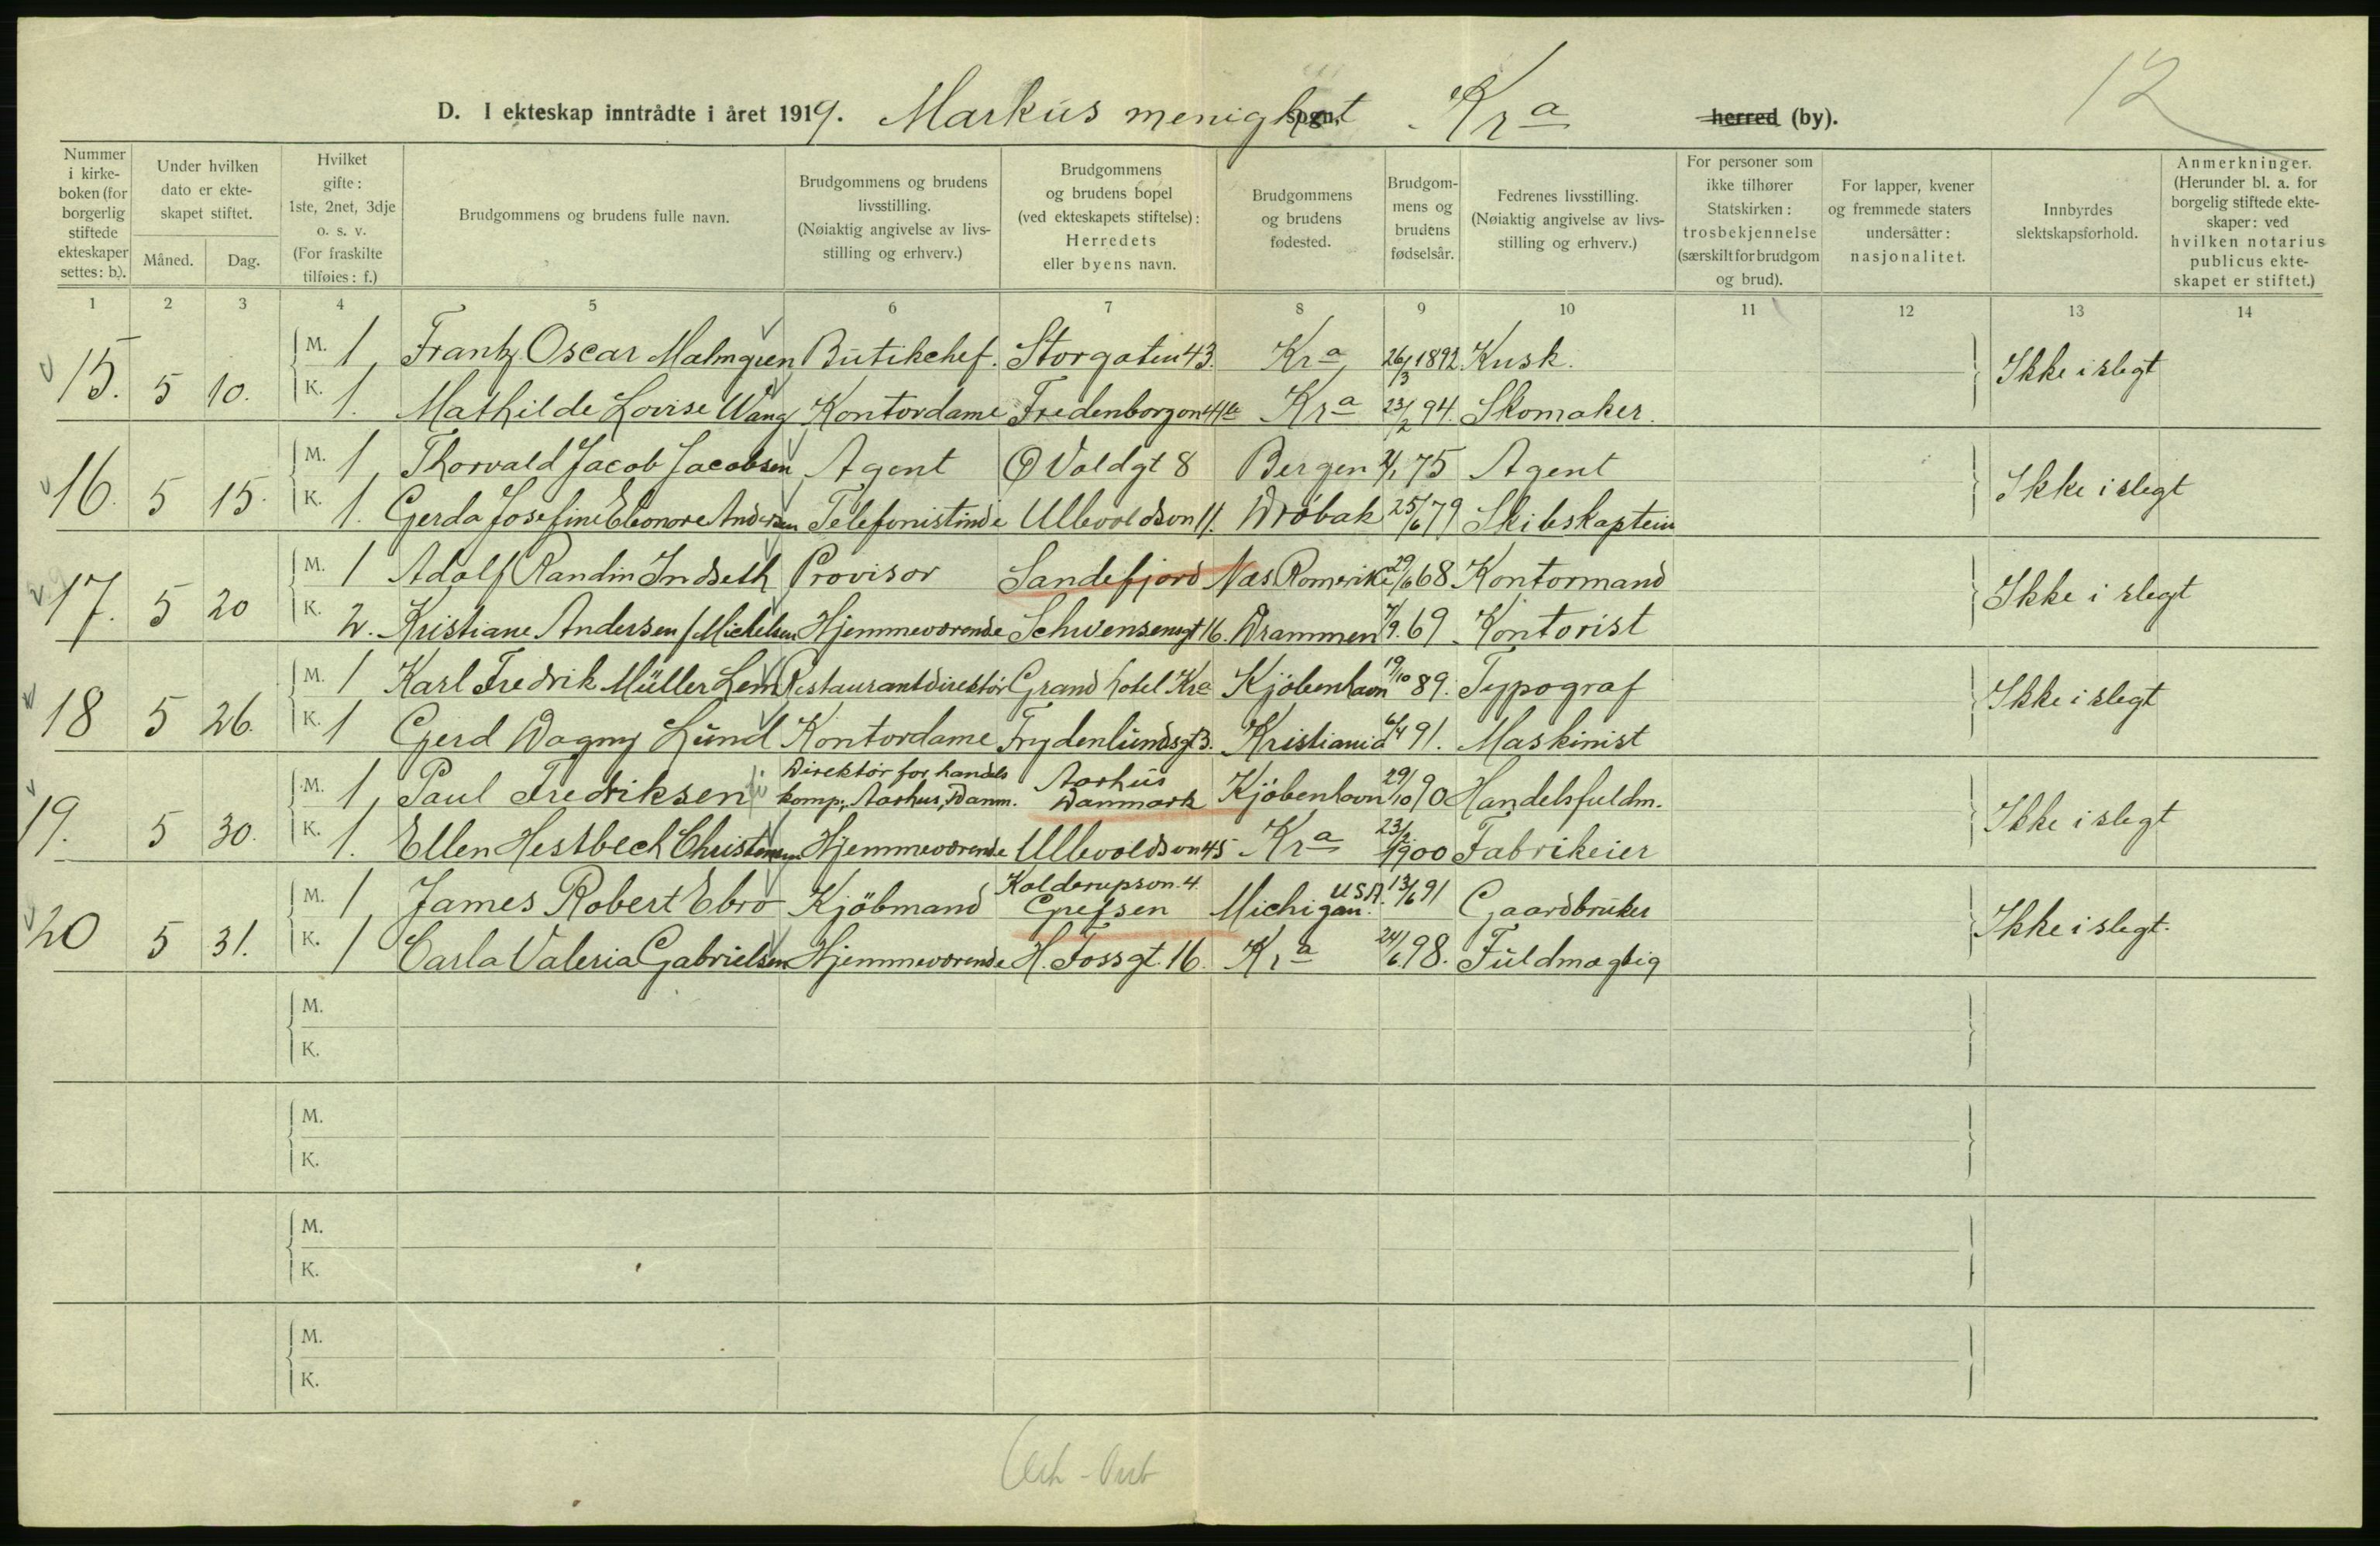 12
D. I ekteskap inntrådte i året 1919. Markus menighet sogn, Kra herred (by).
Nummer i kirke-boken (for borgerlig stiftede ekteskaper settes: b.).
Under hvilken dato er ekte-skapet stiftet.
Måned. Dag.
Hvilket gifte: 1ste, 2net, 3dje o. s. v. (For fraskilte tilføies: f.)
Brudgommens og brudens fulle navn.
Brudgommens og brudens livsstilling. (Nøiaktig angivelse av livs-stilling og erhverv.)
Brudgommens og brudens bopel (ved ekteskapets stiftelse): Herredets eller byens navn.
Brudgommens og brudens fødested.
Brudgom-mens og brudens fødselsår.
Fedrenes livsstilling. (Nøiaktig angivelse av livs-stilling og erhverv.)
For personer som ikke tilhører Statskirken: trosbekjennelse (særskilt for brudgom og brud).
For lapper, kvener og fremmede staters undersåtter: nasjonalitet.
Innbyrdes slektskapsforhold.
Anmerkninger. (Herunder bl. a. for borgelig stiftede ekte-skaper: ved hvilken notarius publicus ekte-skapet er stiftet.)
1 2 3 4 5 6 7 8 9 10 11 12 13 14
15. 5 10. M. 1 Frantz Oscar Malmgren Butikchef. Storgaten 43. Kra 26/3 1892 Kusk. Ikke i slegt
K. 1. Mathilde Lovise Wang Kontordame Fredenborgvn 44 Kra 23/2 94. Skomaker.
16. 5 15. M. 1 Thorvald Jacob Jacobsen Agent Ø Voldgt 8 Bergen 75 Agent Ikke i slegt
K. 1. Gerda Josefine Eleonore Andersen Telefonistinde Ullevoldsvn 11. Drøbak 25/6 79 Skibskaptein
17. 5 20 M. 1 Adolf Randin Indseth Provisor Sandefjord Nes Romerike 29/6 68 Kontormand Ikke i slegt
K. 2. Kristiane Andersen f Michelsen Hjemmeværende Schwensensgt 16. Drammen 7/9. 69 Kontorist
18 5 26. M. 1 Karl Fredrik Müller Lem Restaurantdirektør Grand hotel Kra Kjøbenhavn 19/10 89. Typograf Ikke i slegt
K. 1 Gerd Dagny Lund Kontordame Frydenlundsgt 3. Kristiania 6/4 91. Maskinist
19. 5 30. M. 1 Paul Fredriksen Direktør for handels komp., Aarhus, Danm. Aarhus Danmark Kjøbenhavn 29/10 90 Handelsfuldm. Ikke i slegt
K. 1. Ellen Hestbech Christensen Hjemmeværende Ullevoldsvn 45 Kra 23/2 1900 Fabrikeier
20 5 31. M. 1 James Robert Ebro Kjøbmand Kolderupsvn. 4 Grefsen Michigan U.S.A. 13/6 91 Gaardbruker Ikke i slegt.
K. 1 Carla Valeria Gabrielsen Hjemmeværende H. Fossgt. 16. Kra 24/6 98. Fuldmægtig
M.
K.
M.
K.
M.
K.
M.
K.